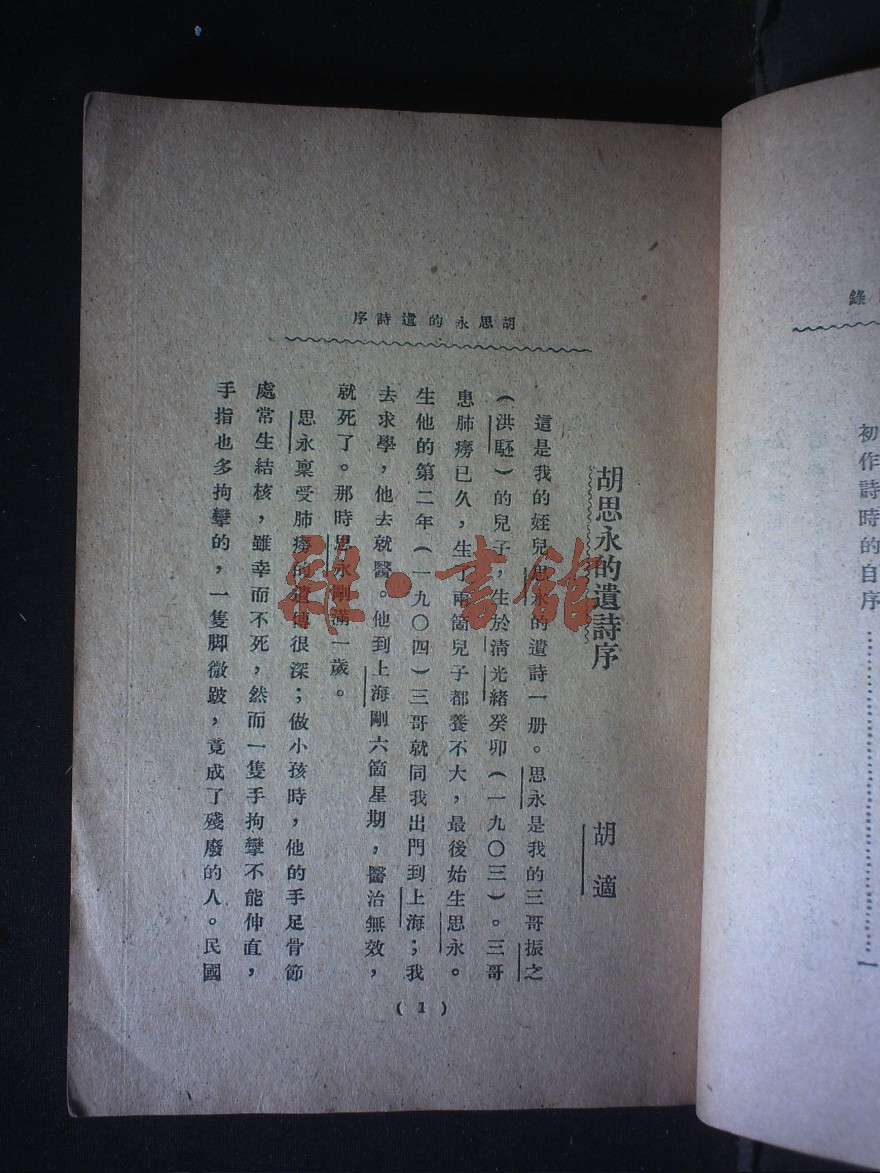 胡思永的遺詩序
胡思永的遺詩序
胡適
這是我的姪兒思永的遺詩一册。思永是我的三哥振之
(洪駓)的兒子，生於清光緒癸卯(一九〇三)。三哥
患肺癆已久，生了兩箇兒子都養不大，最後始生思永。
生他的第二年(一九〇四)三哥就同我出門到上海；我
去求學，他去就醫。他到上海剛六箇星期，醫治無效，
就死了。那時思永剛滿一歲。
思永稟受肺癆的遺傳很深；做小孩時，他的手足骨節
處常生結核，雖幸而不死，然而一隻手拘攣不能伸直，
手指也多拘攣的，一隻脚微跛，竟成了殘廢的人。民國
(1)
錄
初作詩時的自序……………………1
雜·書館